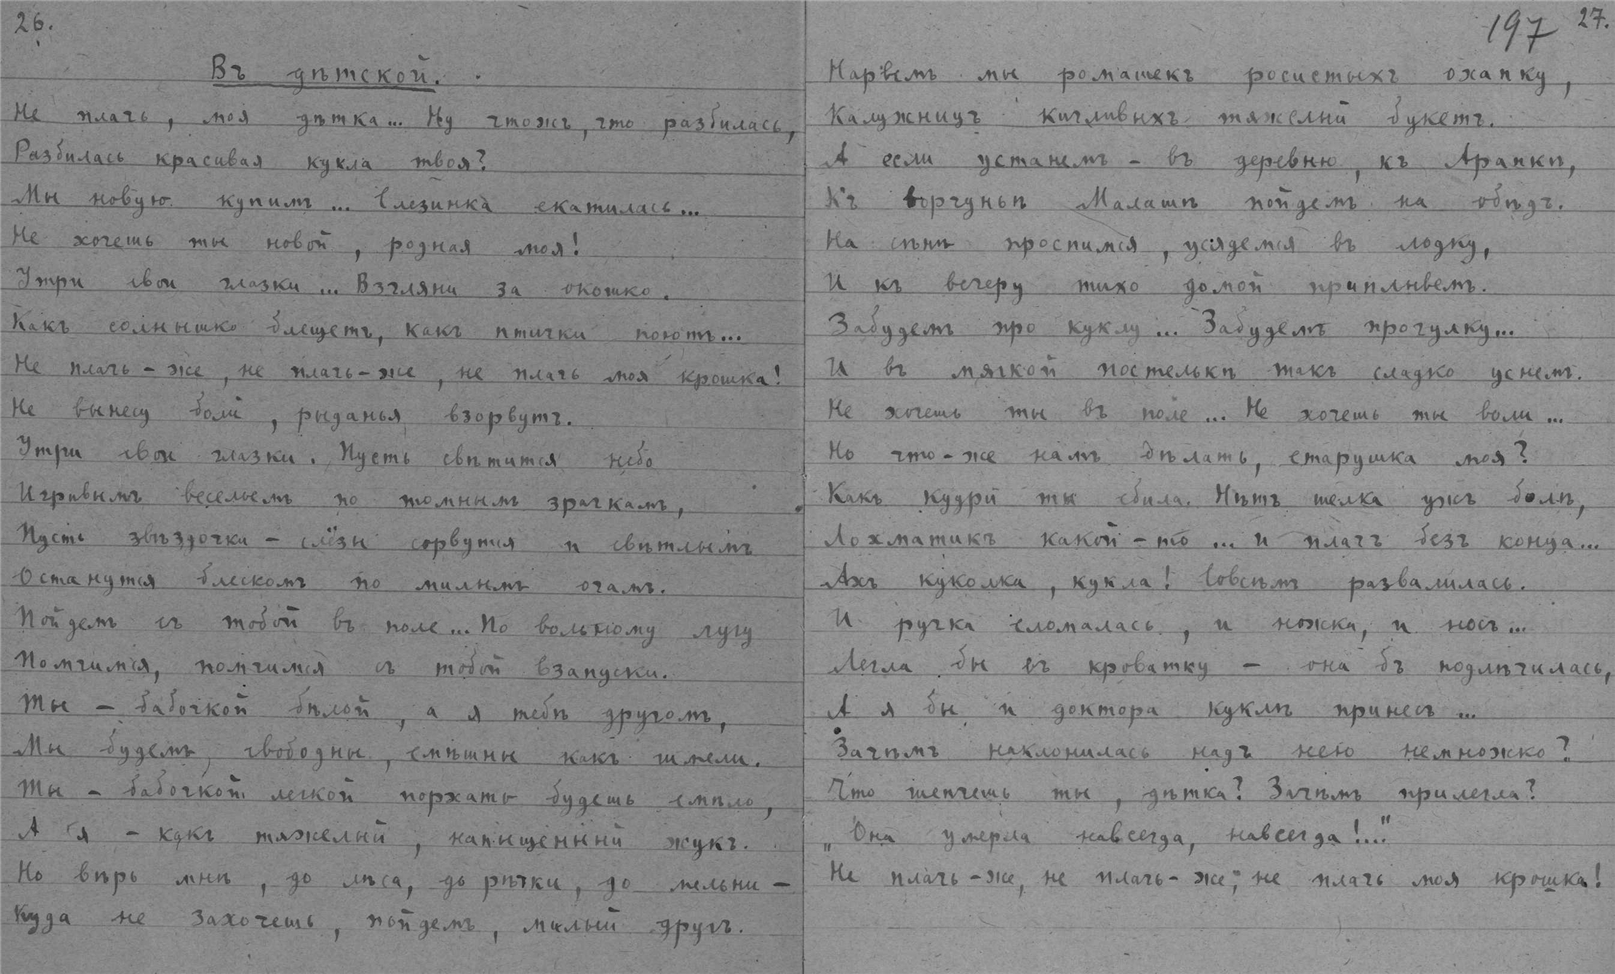 26.
Въ дѣтской.
Не плачь, моя дѣтка... Ну чтожъ, что разбилась,
Разбилась красивая кукла твоя?
Мы новую купимъ... Слезинка скатилась...
Не хочешь ты новой, родная моя!
Утри свои глазки... Взгляни за окошко.
Какъ солнышко блещетъ, какъ птички поютъ...
Не плачь-же, не плачь-же, не плачь моя крошка!
Не вынесу боли, рыданья взорвутъ.
Утри свои глазки. Пусть свѣтится небо
Игривымъ весельемъ по томнымъ зрачкамъ,
Пусть звѣздочки - слёзы сорвутся и свѣтлымъ
Останутся блескомъ по милымъ очамъ.
Пойдемъ съ тобой въ поле... По вольному лугу
Помчимся, помчимся съ тобой взапуски.
Ты - бабочкой бѣлой, а я тебѣ другомъ,
Мы будемъ свободны, смѣшны какъ шмели.
Ты - бабочкой легкой порхать будешь смѣло,
А я - какъ тяжелый, напыщенный жукъ.
Но вѣрь мнѣ, до лѣса, до рѣчки, до мельни-
Куда не захочешь, пойдемъ, милый другъ.
197 27.
Нарвемъ мы ромашекъ росистыхъ охапку,
Калужницъ кичливыхъ тяжелый букетъ.
А если устанемъ - въ деревню, къ Арапкѣ,
Къ ворчуньѣ Малашѣ пойдемъ на обѣдъ.
На сѣнѣ проспимся, усядемся въ лодку,
И къ вечеру тихо домой приплывемъ.
Забудемъ про куклу... Забудемъ прогулку...
И въ мягкой постелькѣ такъ сладко уснемъ.
Не хочешь ты въ поле... Не хочешь ты воли...
Но что-же намъ дѣлать, старушка моя?
Какъ кудри ты сбила. Нѣтъ шелка ужъ болѣ,
Лохматикъ какой-то... и плачъ безъ конца...
Ахъ куколка, кукла! Совсѣмъ развалилась.
И ручка сломалась, и ножка, и носъ...
Легла бы въ кроватку - она бъ подлѣчилась,
А я бы и доктора куклѣ принесъ...
Зачѣмъ наклонилась надъ нею немножко?
Что шепчешь ты, дѣтка? Зачѣмъ прилегла?
„Она умерла навсегда, навсегда!..."
Не плачь-же, не плачь-же, не плачь моя крошка!